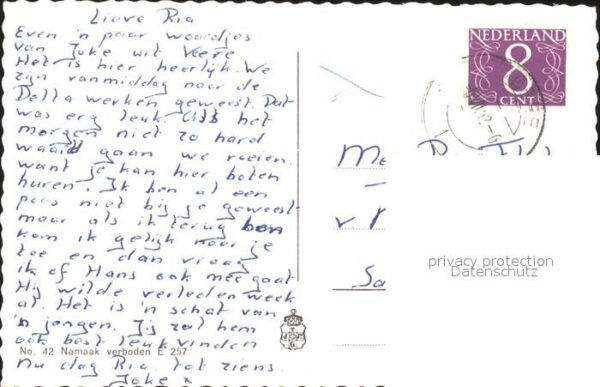 Lieve Ria
Even 'n paar woordjes
van Joke uit Veere
Het is hier heerlijk. We
zijn vanmiddag naar de
Delta werken geweest. Dat
was erg leuk. Als het
morgen niet zo hard
waaid gaan we roeien.
want je kan hier boten
huren. Ik ben al een
poos niet bij je geweest
maar als ik terug ben
kom ik gelijk naar je
toe en dan vraag
ik of Hans ook mee gaat
Hij wilde verleden week
al. Het is 'n schat van
'n jongen. Jij zal hem
ook best leuk vinden
No. 42 Namaak verboden E 257
Nu dag Ria. tot ziens.
Joke x
NEDERLAND
8
CENT
privacy protection
Datenschutz